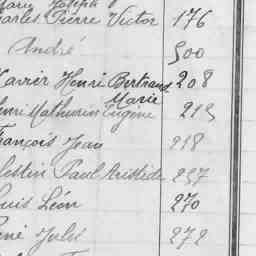 Joseph
Charles Pierre Victor 176
André 200
Xavier Henri Bertrand 208
Marie
Henri Mathurin Eugène 215
François Jean 218
Célestin Paul Aristide 257
Louis Léon 270
René Jules 272